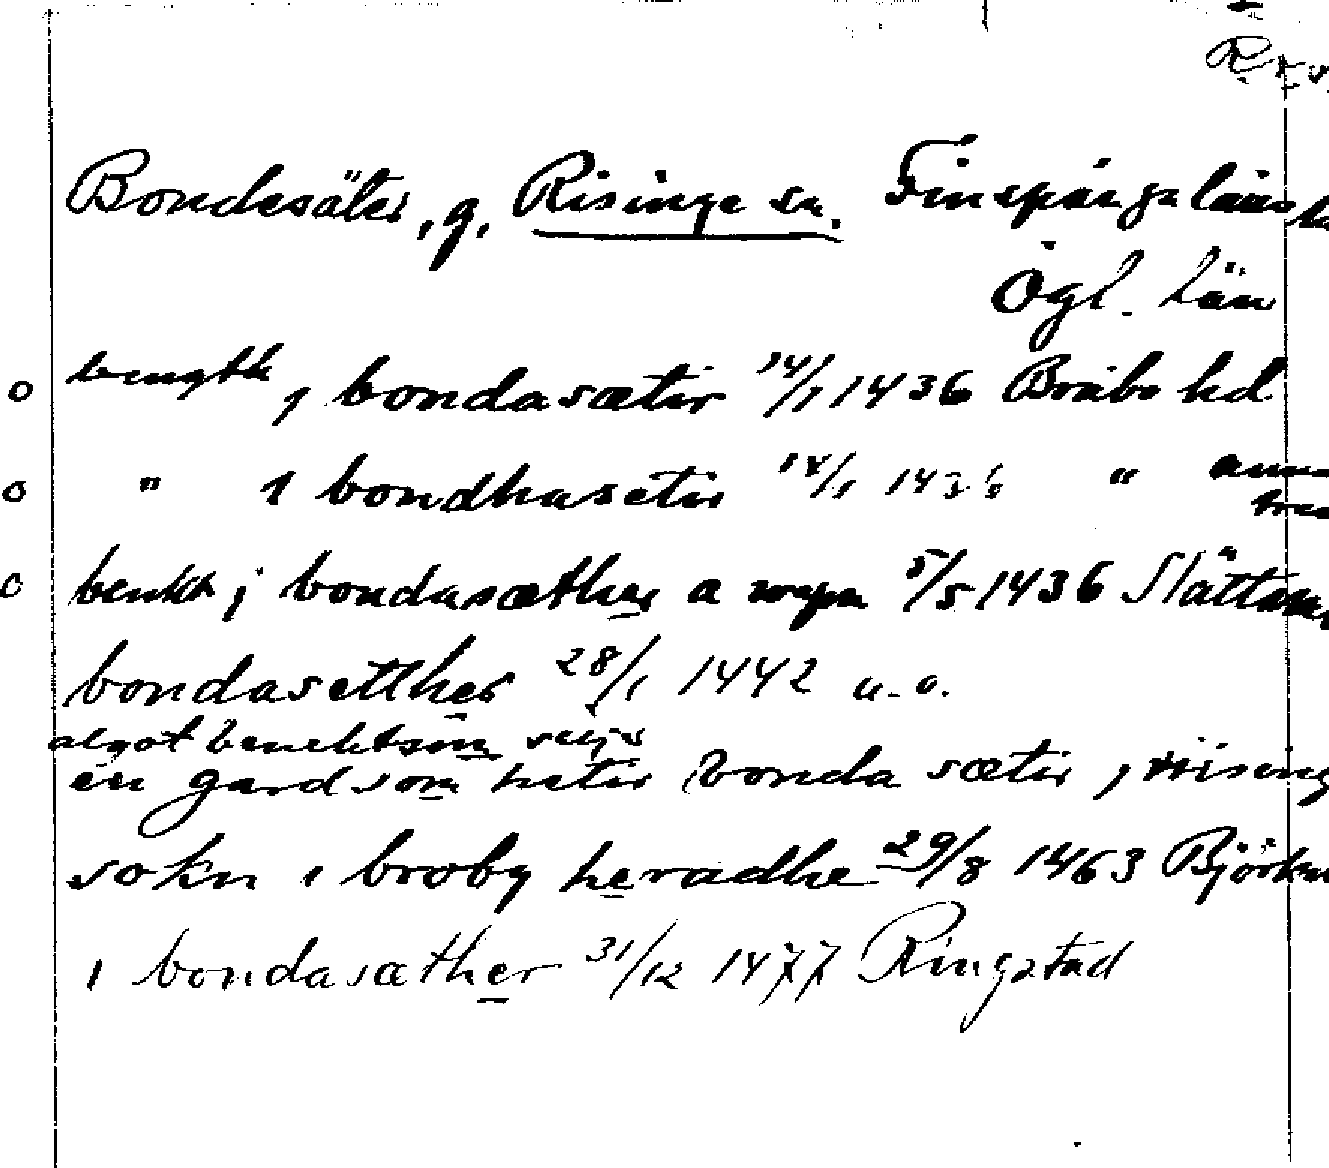 Bondesäter, g. Risinge sn. Finspånga läns
Ögl. Län
bength j bondasætir 14/1 1436 Bråbo hd
" i bondhasetir 14/1 1436 "
benkt j bondasæther a 5/5 1436
bondasetther 28/1 1442 u. o.
algot benektson
en gard som hetir bonda sætir j
sokn i broby heradhe 29/8 1463
i bondasæther 31/12 1477 Ringstad